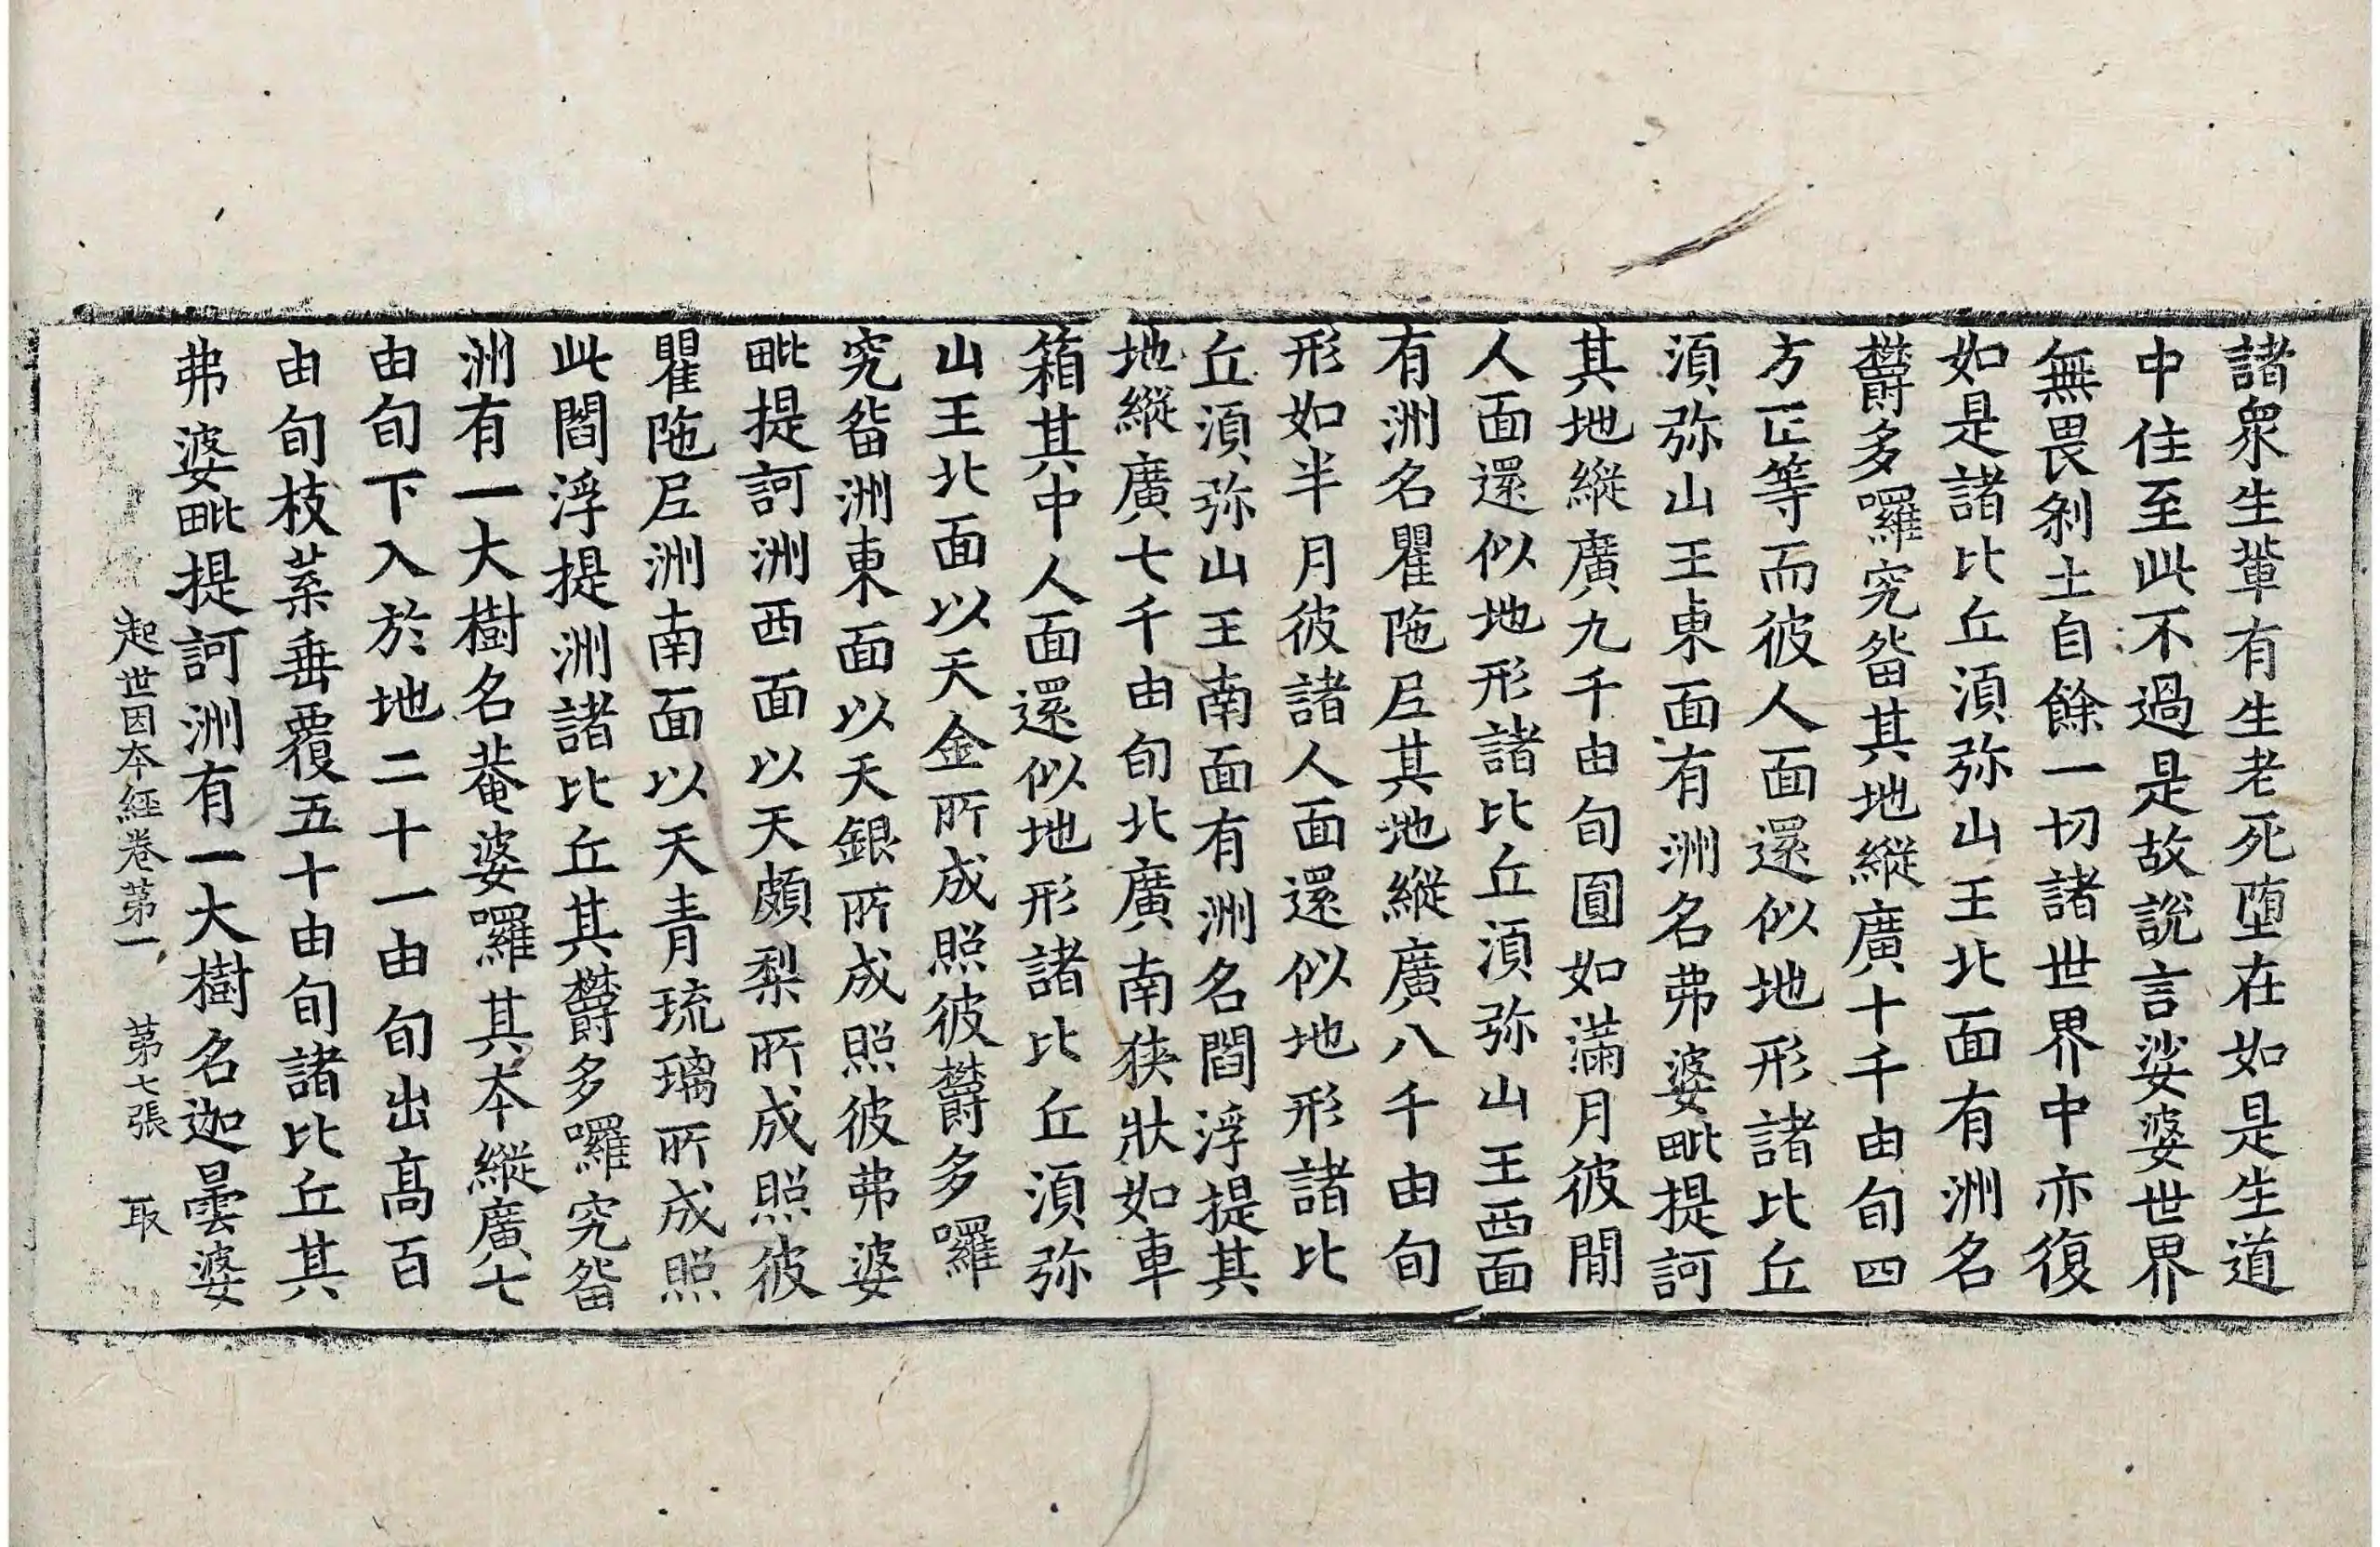 諸衆生軰有生老死堕在如是生道
中住至此不過是故說言娑婆世界
無畏刹土自餘一切諸世界中亦復
如是諸比丘湏弥山王北面有洲名
欝多囉究㽞其地縱廣十千由旬四
方正等而彼人面還似地形諸比丘
湏弥山王東面有洲名弗婆毗提訶
其地縱廣九千由旬圓如滿月彼間
人面還似地形諸比丘湏弥山王西面
有洲名瞿陁𡰱其地縱廣八千由旬
形如半月彼諸人面還似地形諸比
丘湏弥山王南面有洲名閻浮提其
地縱廣七千由旬北廣南狹狀如車
箱其中人面還似地形諸比丘湏弥
山王北面以天金所成照彼欝多囉
究㽞洲東面以天銀所成照彼弗婆
毗提訶洲西面以天頗梨所成照彼
瞿陁𡰱洲南面以天青琉璃所成照
此閻浮提洲諸比丘其欝多囉究㽞
洲有一大樹名菴婆囉其本縱廣七
由旬下入於地二十一由旬出髙百
由旬枝葉垂覆五十由旬諸比丘其
弗婆毗提訶洲有一大樹名迦曇婆
起世因本經卷第一 第七張 取